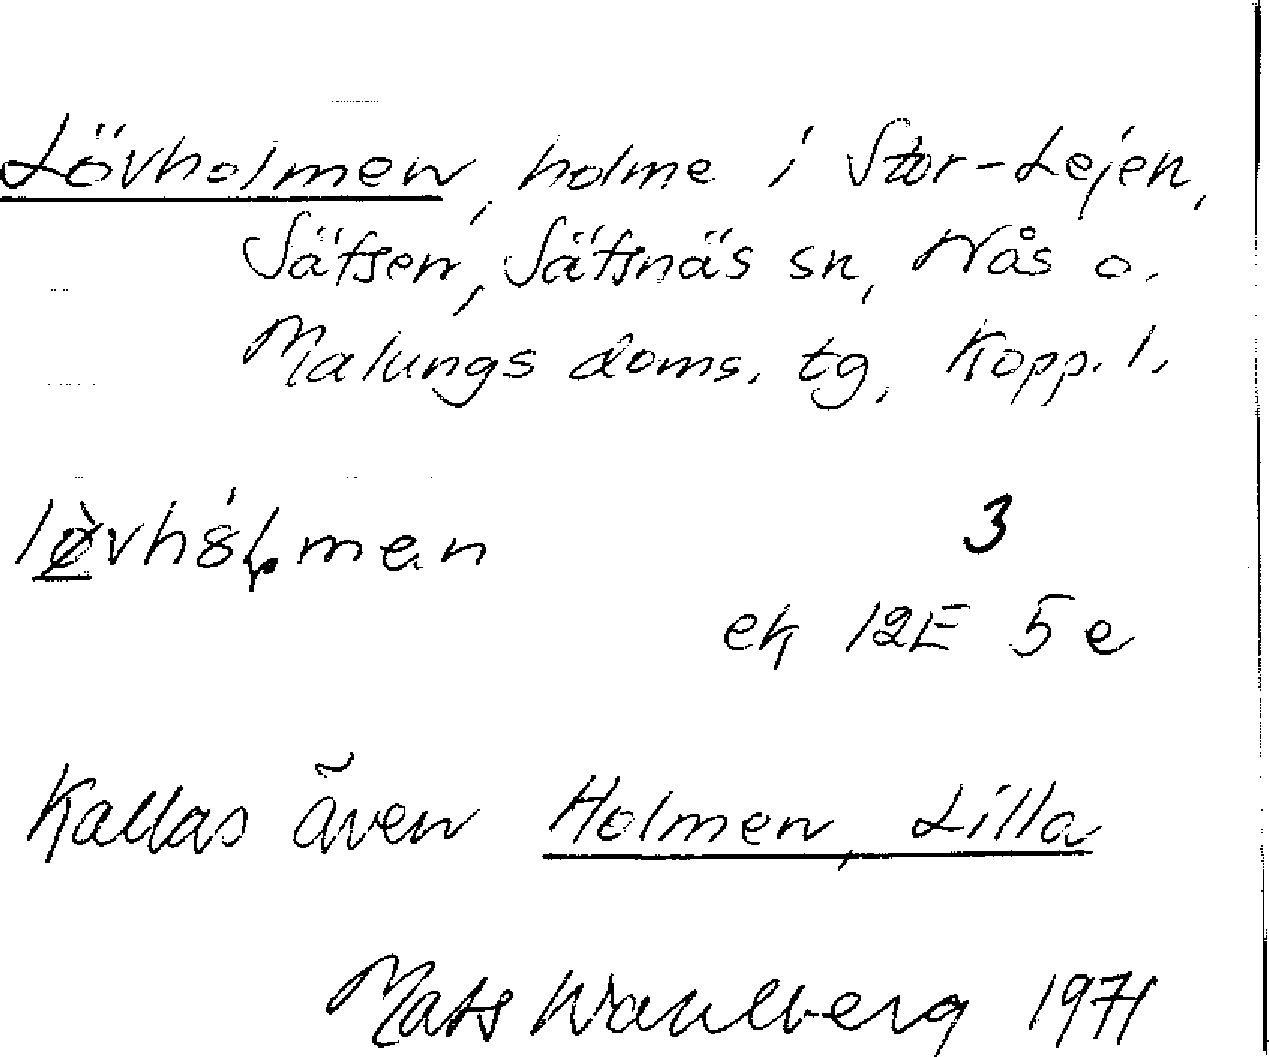 Lövholmen, holme i Stor-Lejen,
Säfsen, Säfsnäs sn, Nås o.
Malungs doms. tg, Kopp. l.
3
ek 12E 5e
Kallas även Holmen, Lilla
Mats Wahlberg 1971